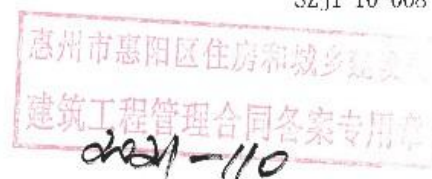 SZJT-10-008
惠州市惠阳区住房和城乡建设
建筑工程管理合同备案专用章
2021-110